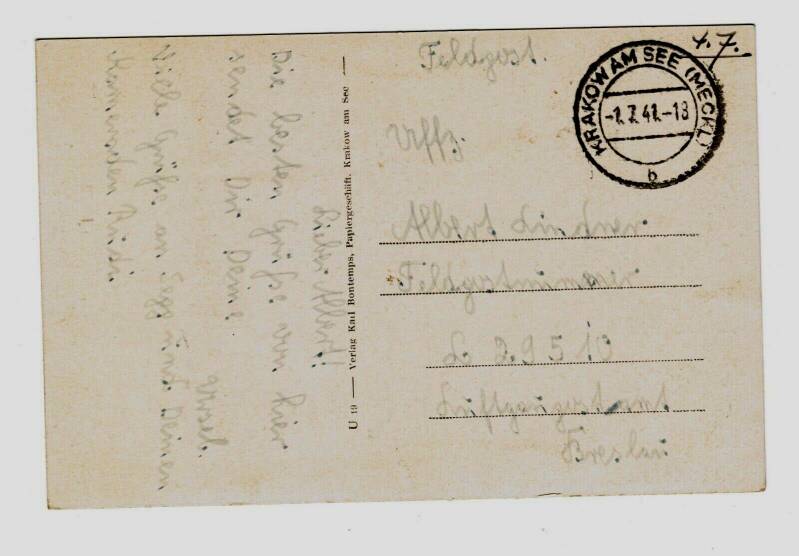 Feldpost.
4. 7.
KRAKOW AM SEE (MECKL)
-1.7.41.-18
b
Uffz.
Albert Lindner
Feldpostnummer
L 29510
Luftgaupostamt
Breslau
U 19 — Verlag Karl Bontemps, Papiergeschäft, Krakow am See —
Lieber Albert!
Die besten Grüße von hier
sendet Dir Deine
Ursel.
Viele Grüße an und Deinen
Kameraden